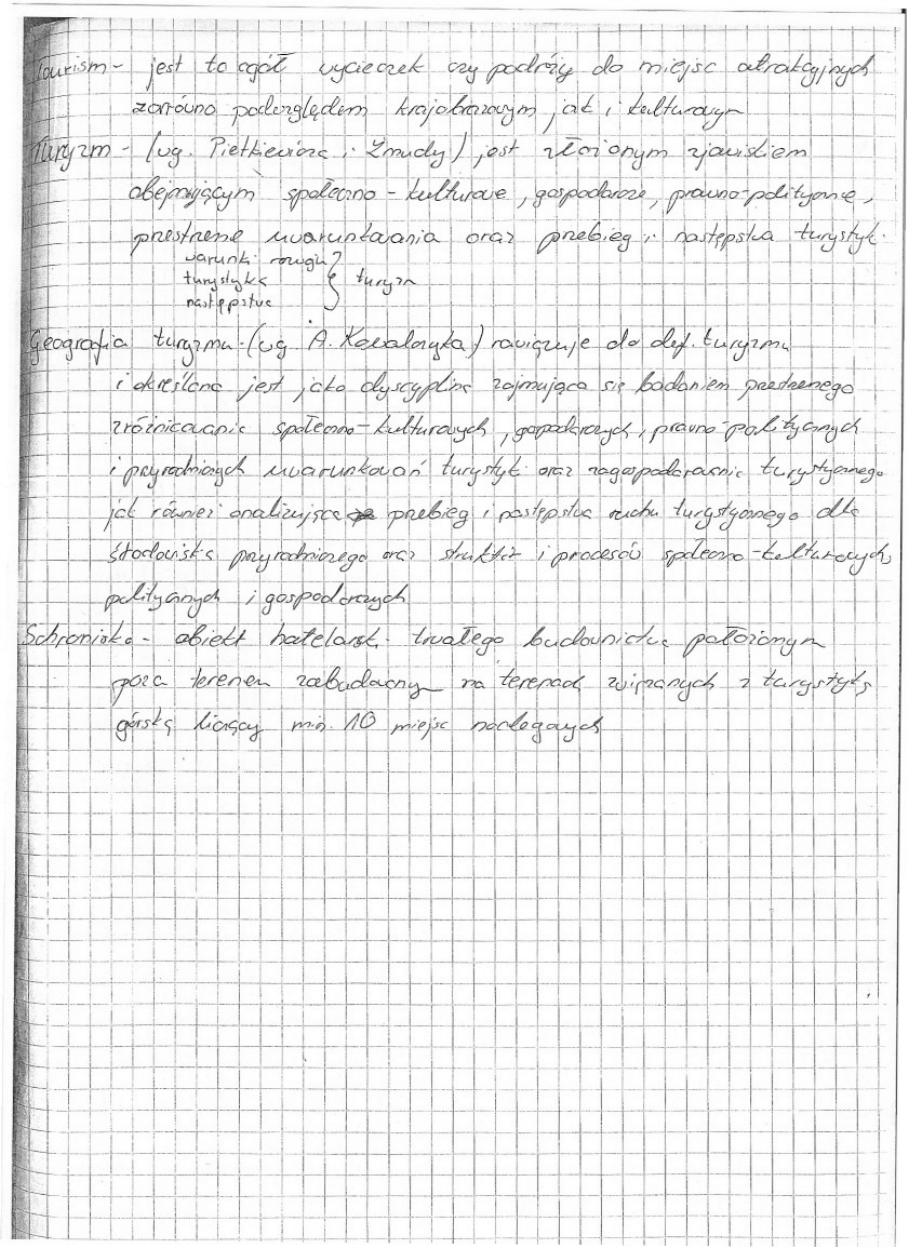 Tourism - jest to ogół wycieczek czy podróży do miejsc atrakcyjnych
zarówno pod względem krajobrazowym jak i kulturowym
Turyzm - (wg. Pietkiewicza i Żmudy) jest złożonym zjawiskiem
obejmującym społeczno-kulturowe, gospodarcze, prawno-polityczne,
przestrzene uwarunkowania oraz przebieg i następstwa turystyk.
warunki
turystyka } turyzm
następstwa
Geografia turyzmu - (wg. A. Kowalczyka) nawiązuje do def. turyzmu
i określona jest jako dyscyplina zajmująca się badaniem przestrzenego
zróżnicowania społeczno-kulturowych, gospodarczych, prawno-politycznych
i przyrodniczych uwarunkowań turystyk oraz zagospodarowanie turystycznego
jak również analizująca przebieg i następstwa ruchu turystycznego dla
środowiska przyrodniczego oraz struktur i procesów społeczno-kulturowych
politycznych i gospodarczych
Schronisko - obiekt hotelarsk. trwałego budownictwa położonym
poza terenem zabudowanym na terenach związanych z turystyką
górską liczący min. 10 miejsc noclegowych